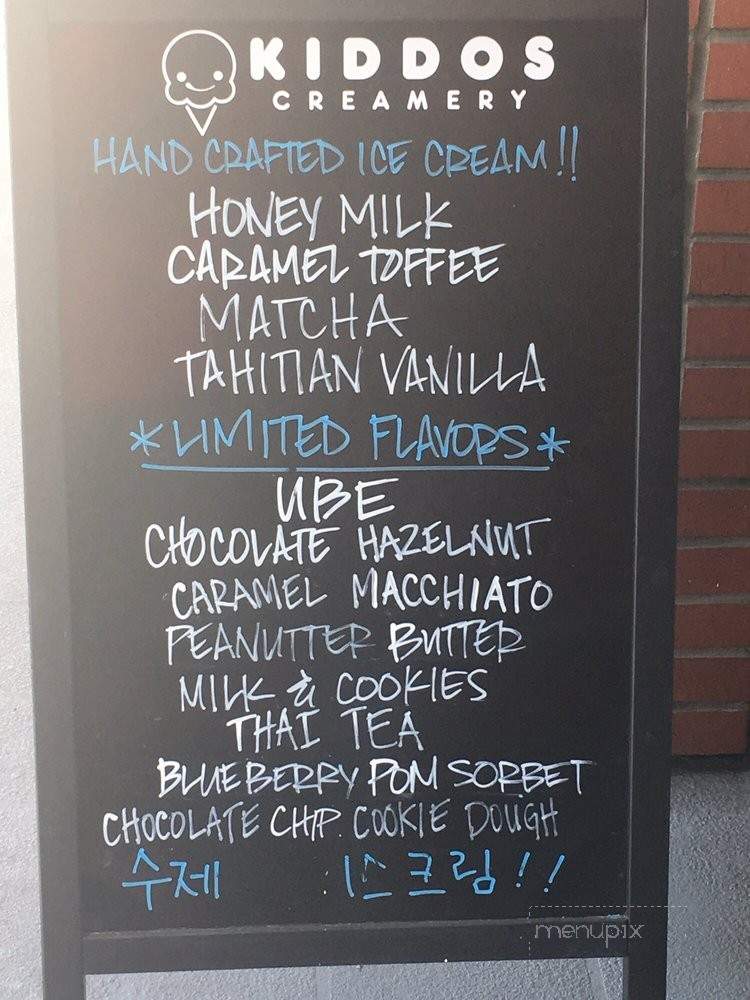 KIDDOS
CREAMERY
HAND CRAFTED ICE CREAM!!
HONEY MILK
CARAMEL TOFFEE
MATCHA
TAHITIAN VANILLA
*LIMITED FLAVORS*
UBE
CHOCOLATE HAZELNUT
CARAMEL MACCHIATO
PEANUTTER BUTTER
MILK & COOKIES
THAI TEA
BLUEBERRY POM SORBET
CHOCOLATE CHIP COOKIE DOUGH
수제
menupix